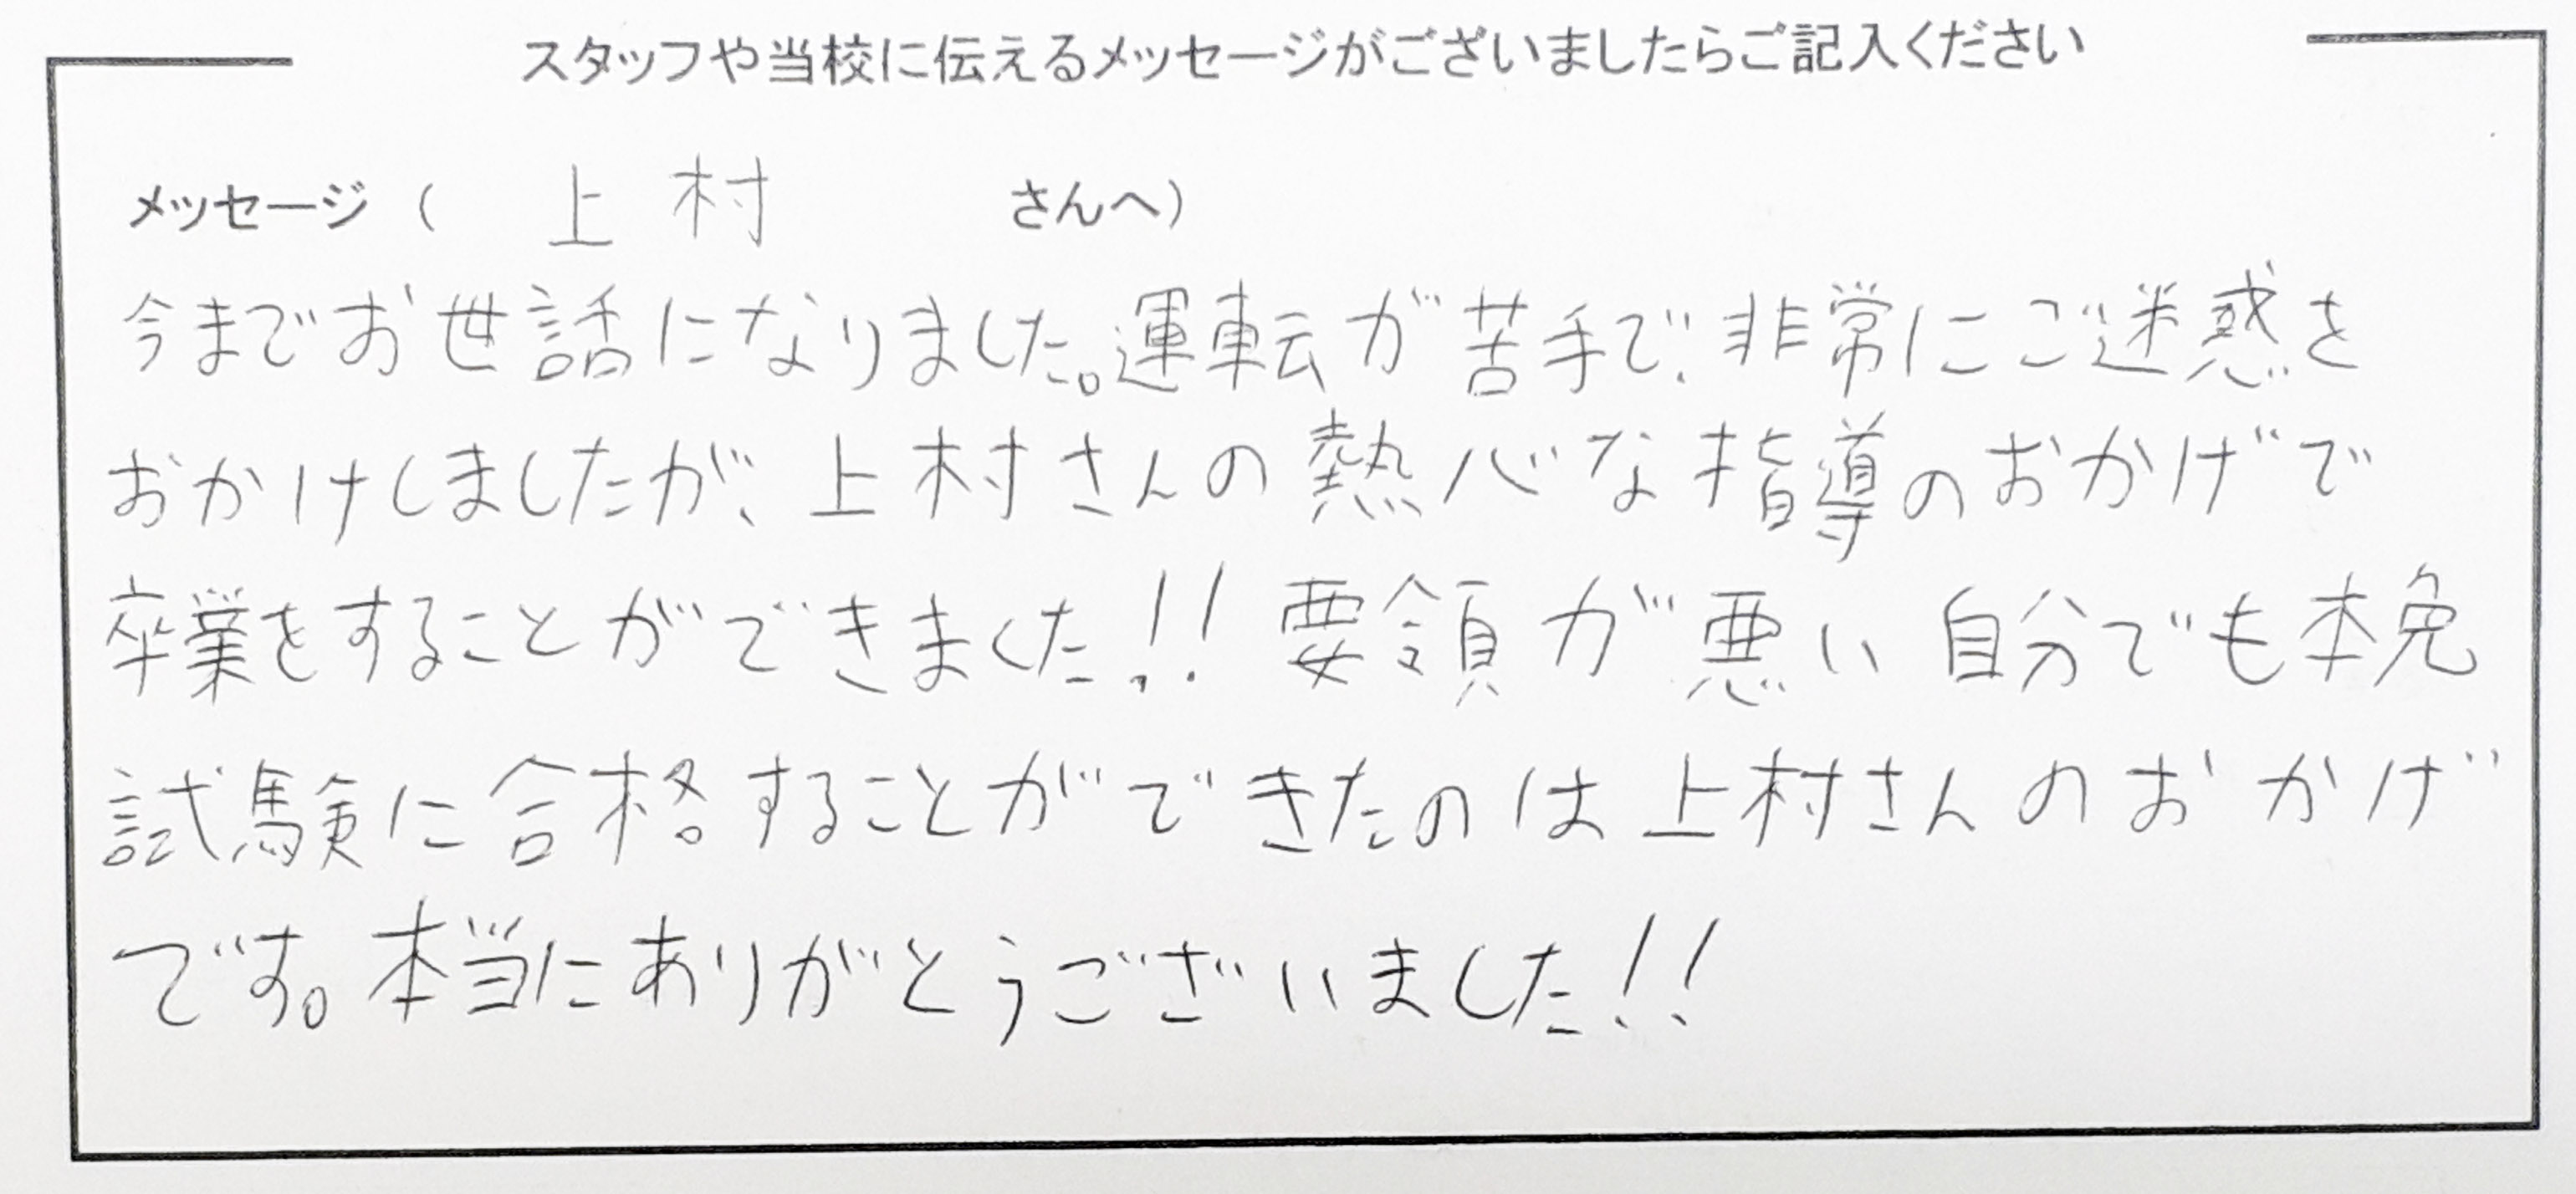 スタッフや当校に伝えるメッセージがございましたらご記入ください
メッセージ（ 上村 さんへ）
今までお世話になりました。運転が苦手で、非常にご迷惑を
おかけしましたが、上村さんの熱心な指導のおかげで
卒業をすることができました!! 要領が悪い自分でも本免
試験に合格することができたのは上村さんのおかげ
です。本当にありがとうございました!!